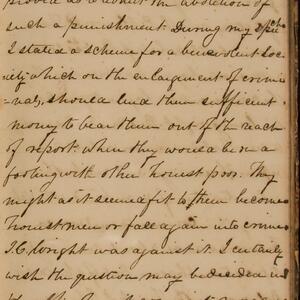 such a punishment. During my speech
I stated a scheme for a benevolent Soc-
iety which on the enlargement of crimi
=nals, should lend them sufficient
money to bear them out of the reach
of report when they would be on a
footing with other honest poor. They
might as it seemed fit to them become
honest men or fall again into crime
I.C. Wright was against it. I certainly
wish the question may be decided in